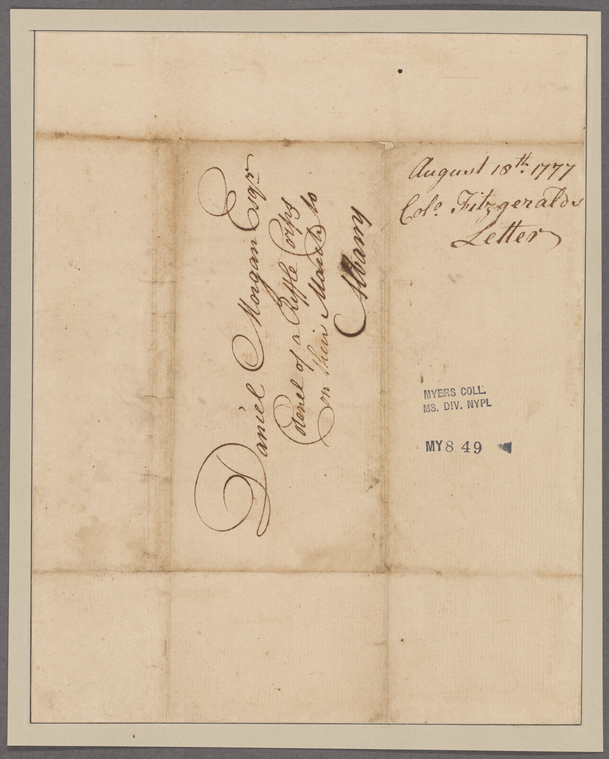 Daniel Morgan Esqr.
Colonel of a Riffle Corps
on their March to
Albany
August 18th. 1777
Colo. Fitzgeralds
Letter
MYERS COLL.
MS. DIV. NYPL
MY 8 49